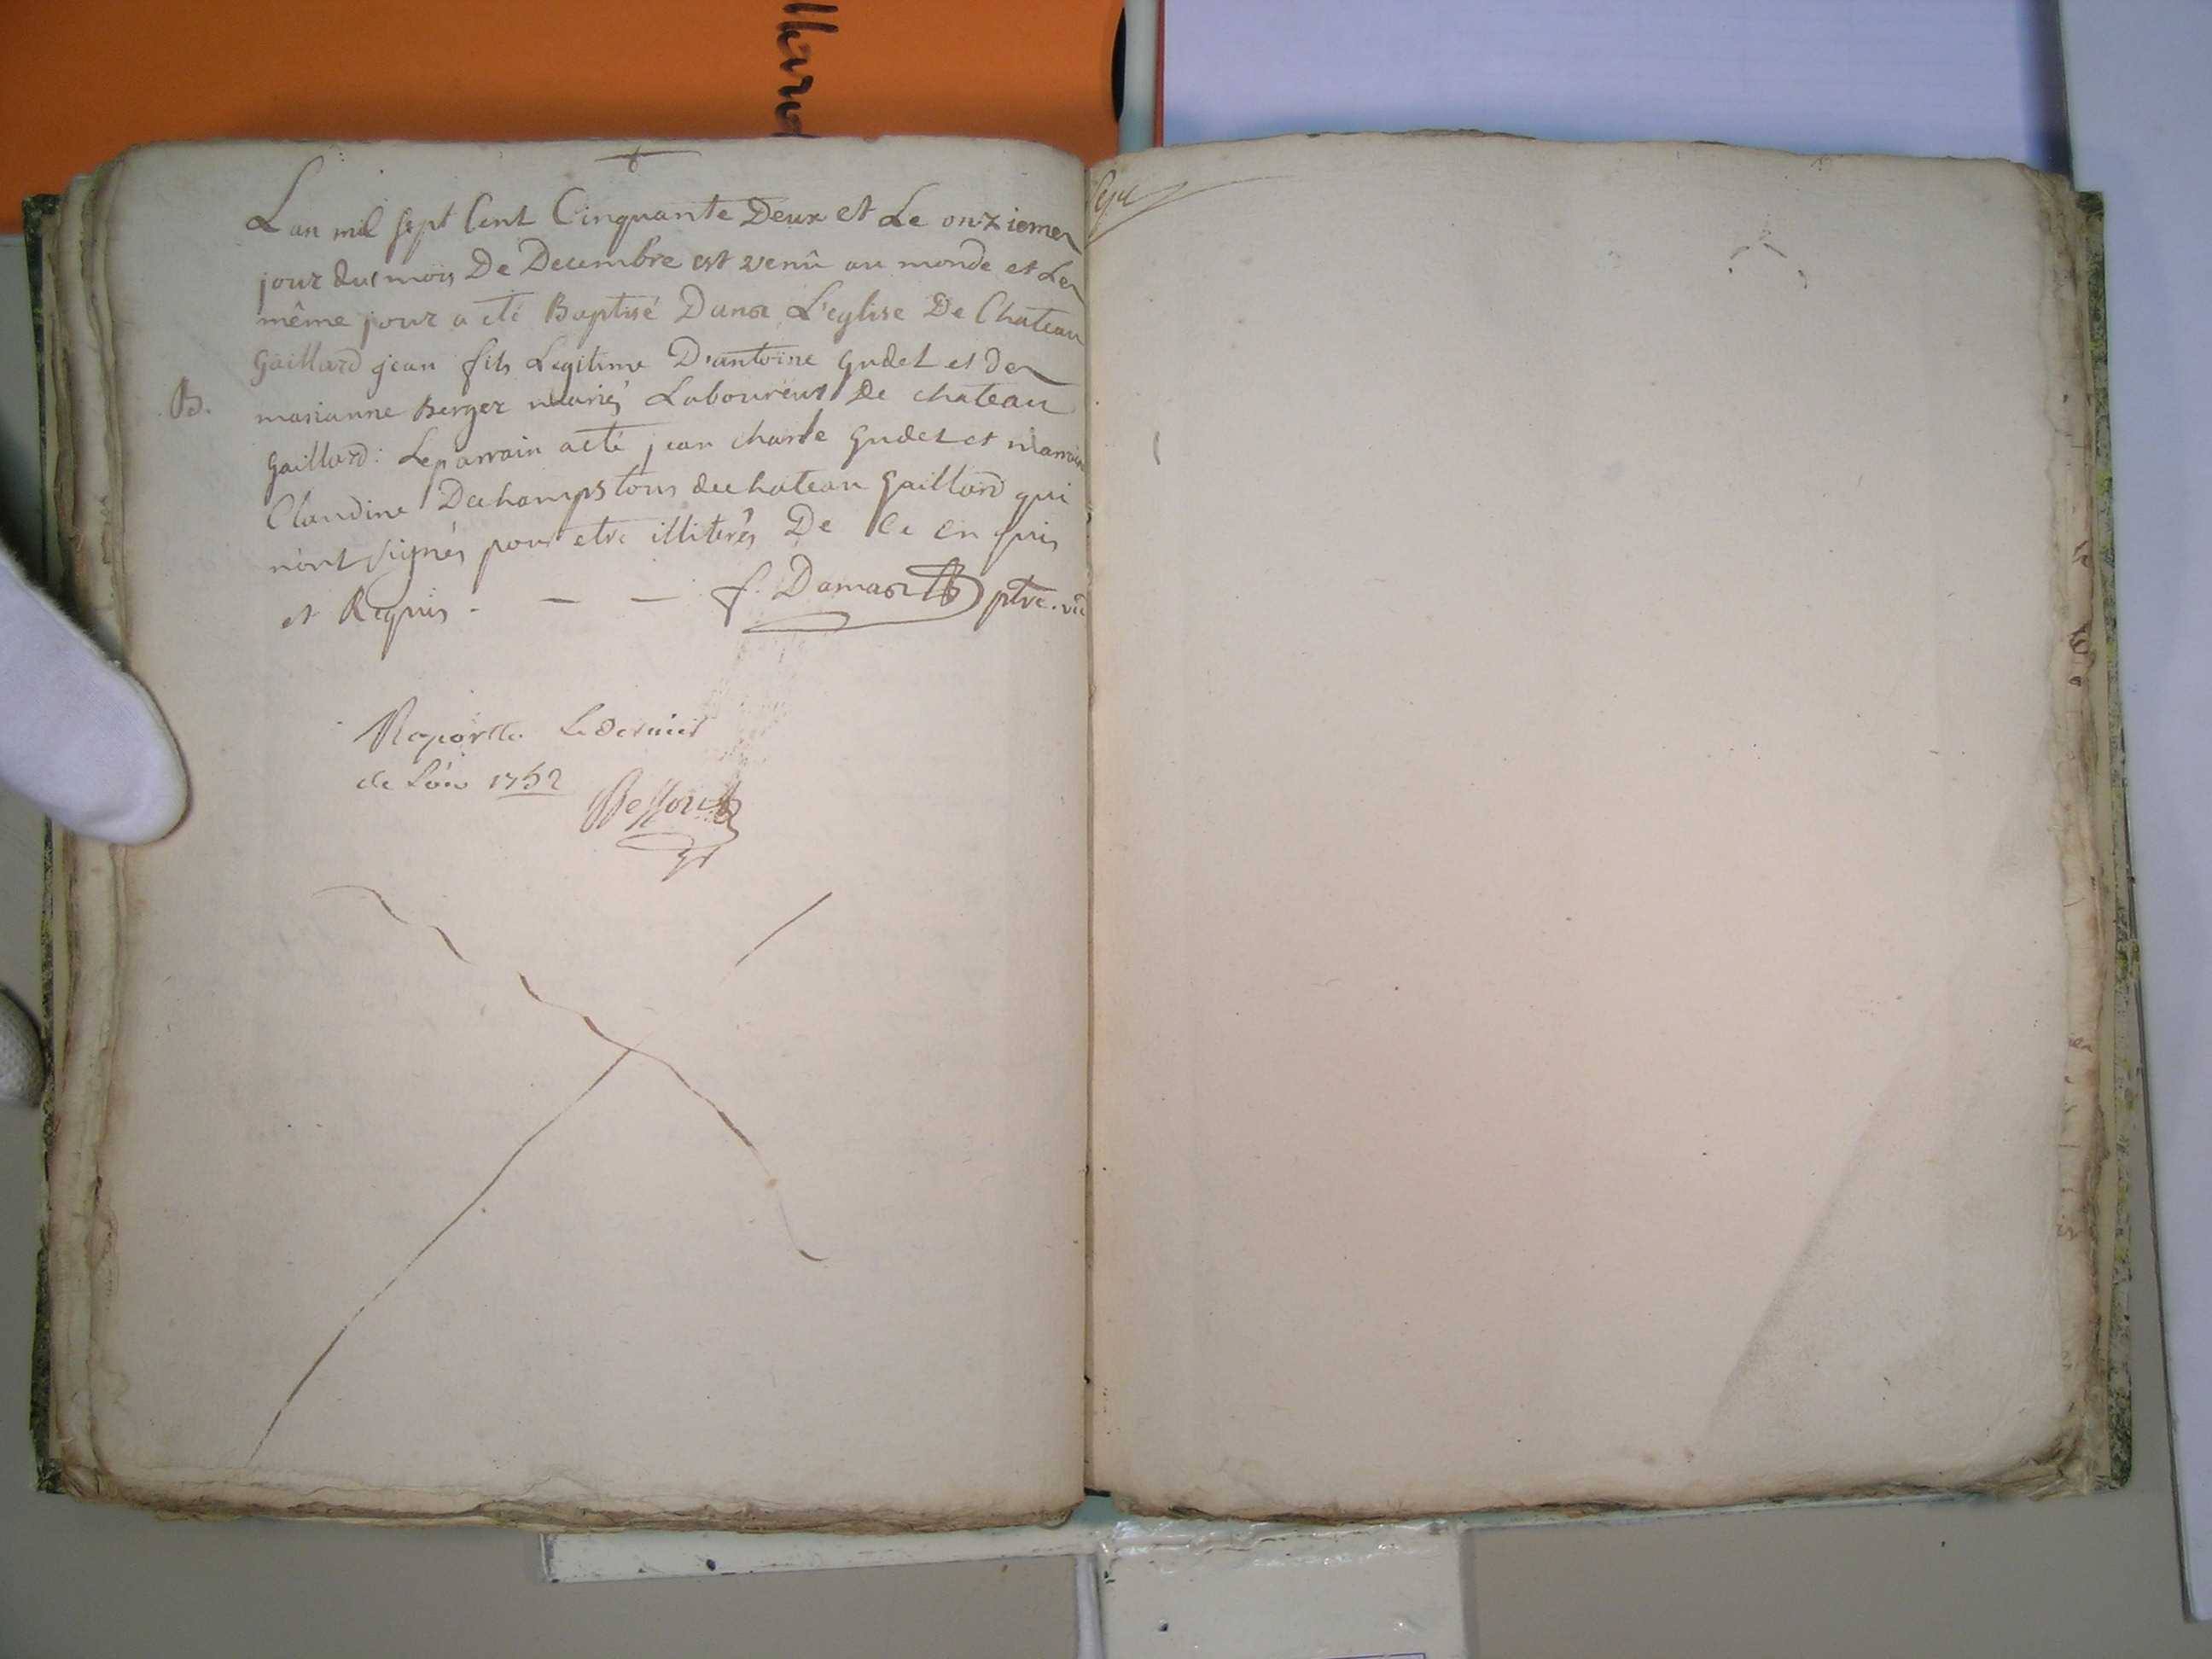 L'an mil sept Cent Cinquante Deux et Le onzieme
jour du mois De Decembre est venû au monde et Le
même jour a eté Baptisé Dans L'eglise De Chateau
Gaillard jean fils Legitime D'antoine Gudet et de
B. marianne Berger mariés Laboureurs De chateau
Gaillard: Le parrain a eté jean charle Gudet et marraine
Claudine Dechamps tous de chateau Gaillard qui
n'ont signés pour etre illiterés De Ce En quis
et Requis. — — f. Damas ptre. vic
Raporté Le dernier
de 1752